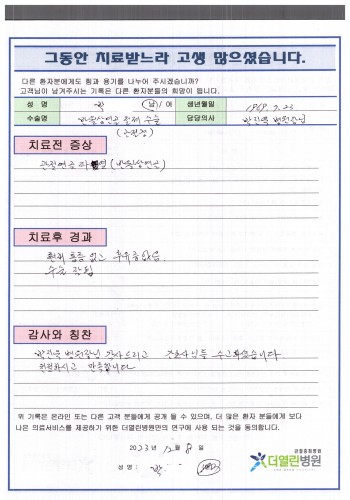 그동안 치료받느라 고생 많으셨습니다.
다른 환자분에게도 힘과 용기를 나누어 주시겠습니까?
고객님이 남겨주시는 기록은 다른 환자분들의 희망이 됩니다.
성 명 박 남/여 생년월일 1969.7.23
수술명 반월상연골 절제 수술 담당의사 박진욱 병원장님
(관절경)
치료전 증상
관절연골 파열 (반월상연골)
치료후 경과
현재 통증 없고 후유증 없음.
수술 잘됨
감사와 칭찬
박진욱 병원장님 감사드리고 간호사님들 수고하셨습니다
친절하시고 만족합니다
위 기록은 온라인 또는 다른 고객 분들에게 공개 될 수 있으며, 더 많은 환자 분들에게 보다
나은 의료서비스를 제공하기 위한 더열린병원만의 연구에 사용 되는 것을 동의합니다.
2023년 12월 8일
성 명 : 박
관절중점병원
더열린병원